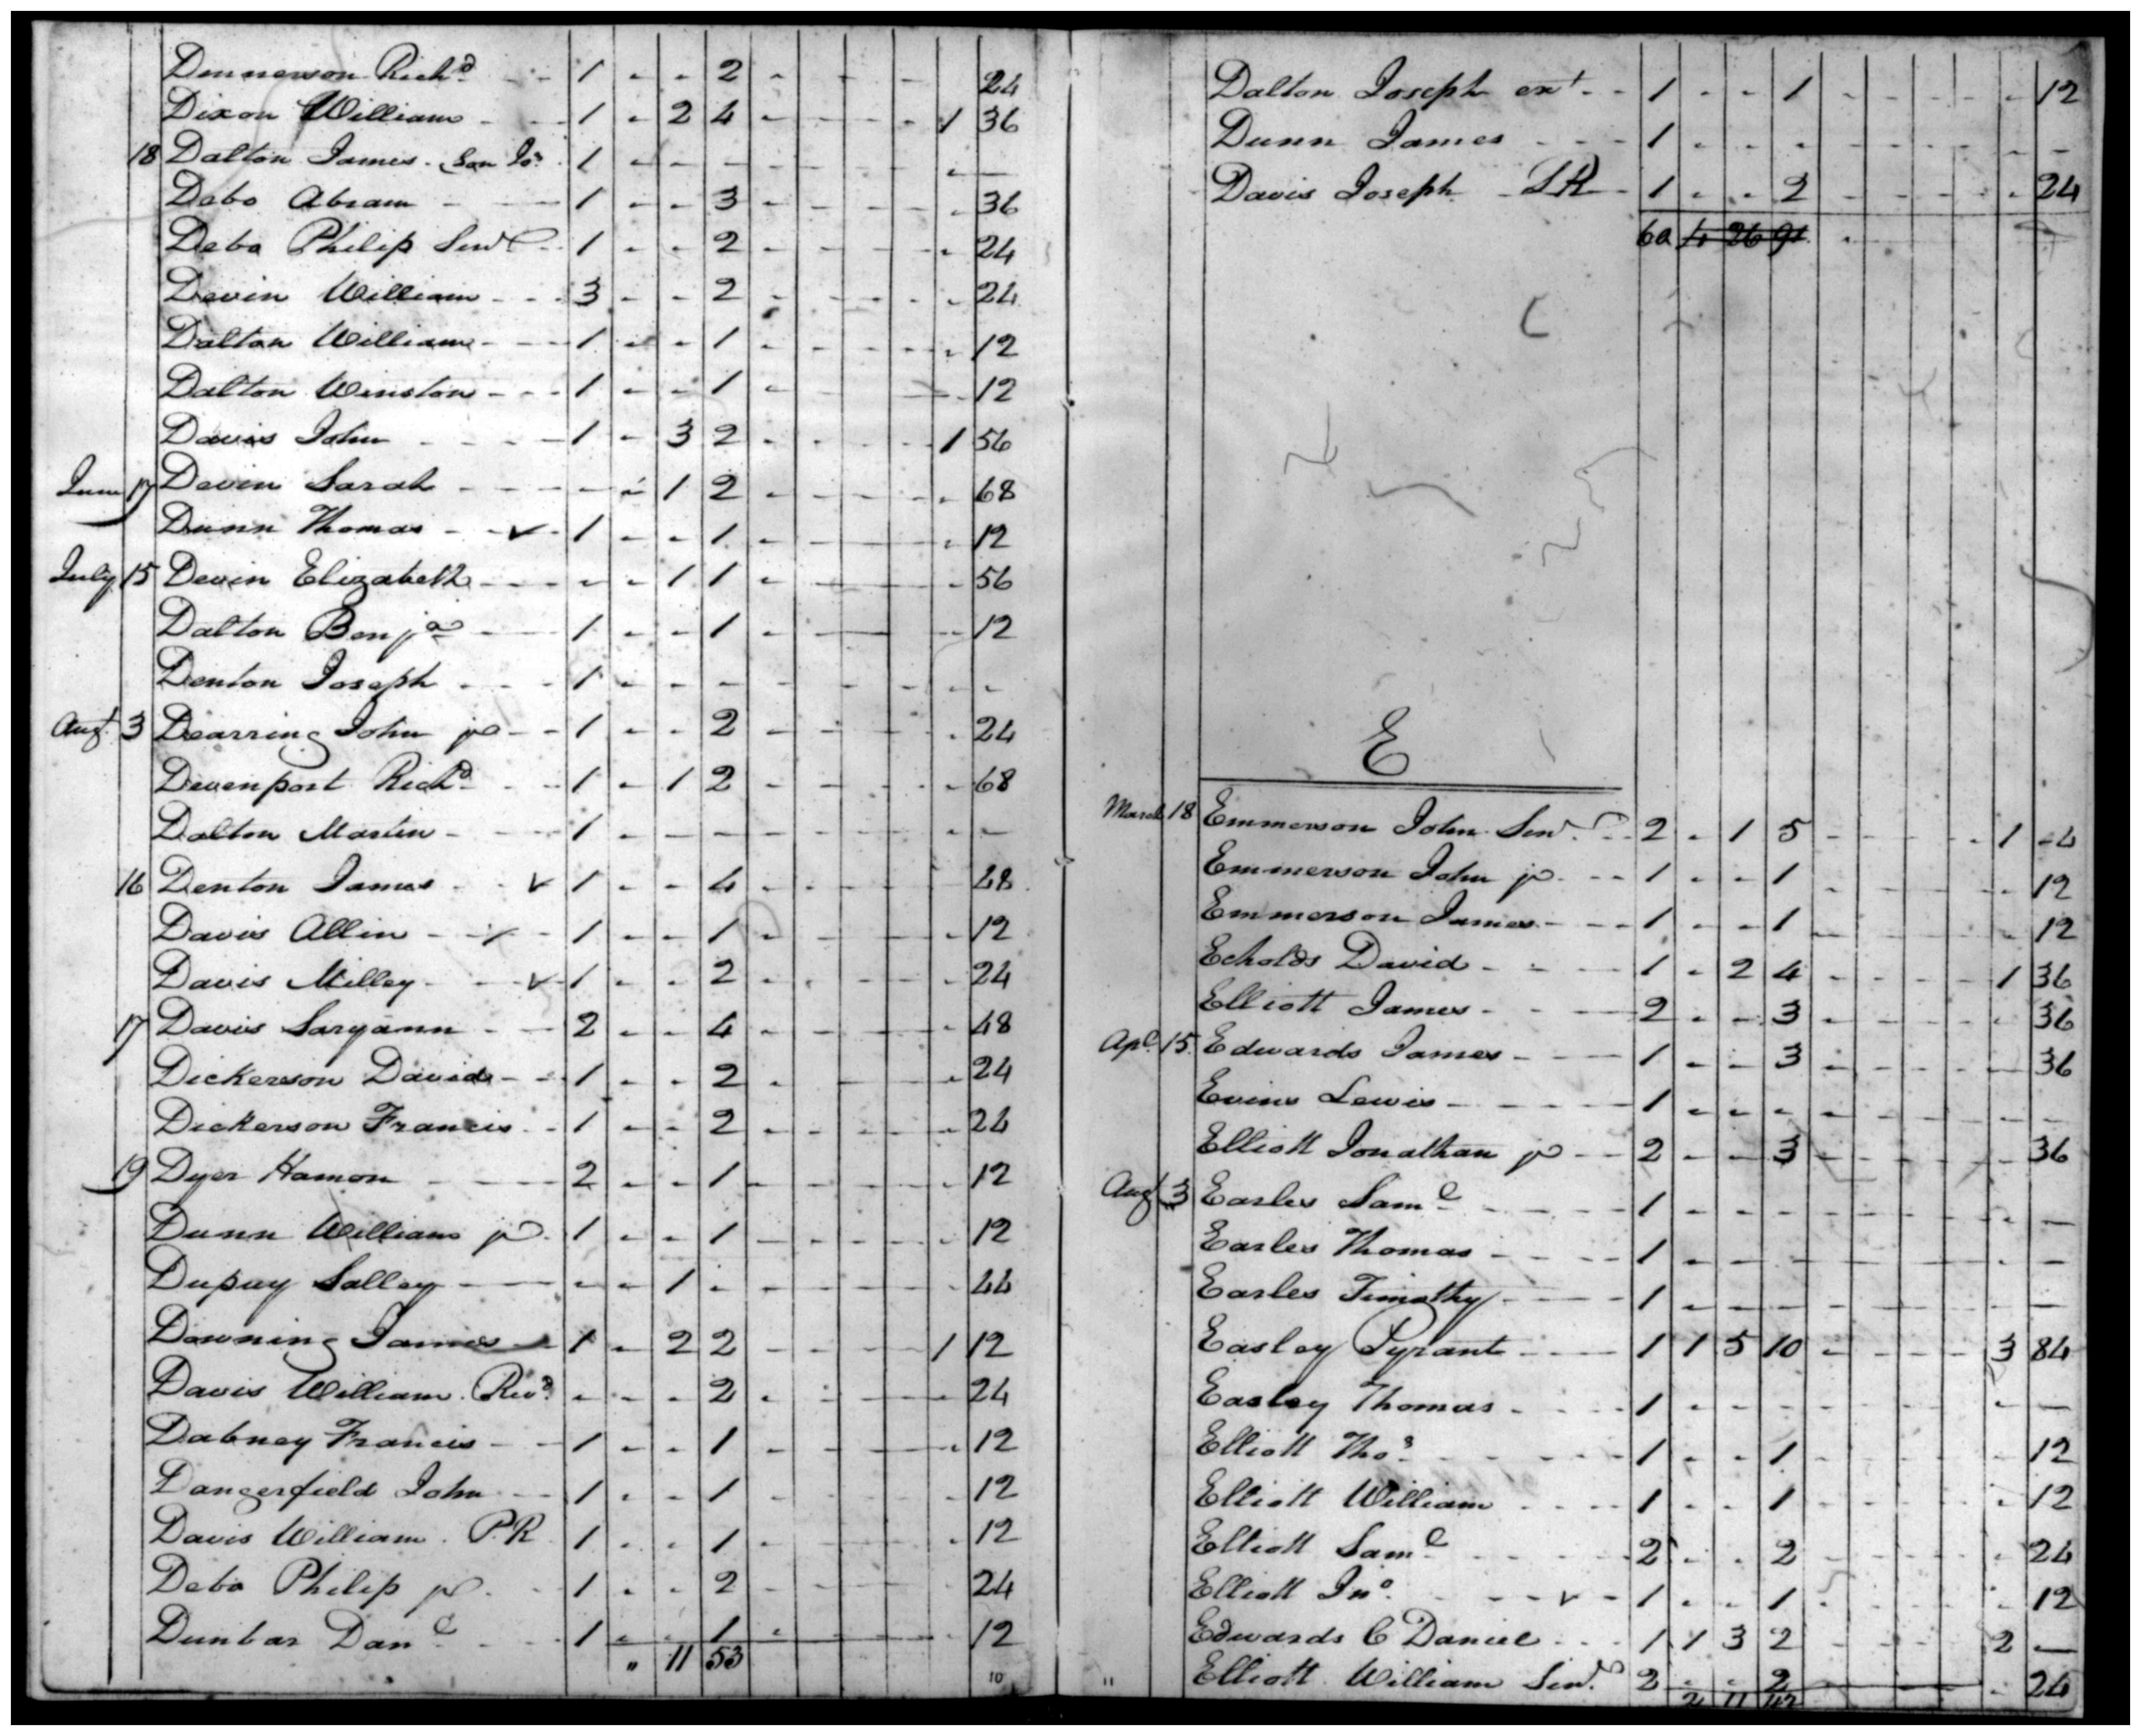 Dennerson Richd 1 - - 2 - - - 24
Dixon William 1 - 2 4 - - - - 1 36
18 Dalton James. Son Jos 1 - - - - - - - - —
Debo Abram 1 - - 3 - - - - - 36
Debo Philip Senr 1 - - 2 - - - - - 24
Devin William 3 - - 2 - - - - - 24
Dalton William 1 - - 1 - - - - - 12
Dalton Winston 1 - - 1 - - - - - 12
Davis John 1 - 3 2 - - - - 1 56
June 17 Devin Sarah - - 1 2 - - - - - 68
Dunn Thomas ✓ 1 - - 1 - - - - - 12
July 15 Devin Elizabeth - - 1 1 - - - - - 56
Dalton Benja 1 - - 1 - - - - - 12
Denton Joseph 1 - - - - - - - - -
Augt 3 Dearring John jr 1 - - 2 - - - - - 24
Devenport Richd 1 - 1 2 - - - - - 68
Dalton Martin 1 - - - - - - - - —
16 Denton James ✓ 1 - - 4 - - - - 48
Davis Allin ✓ 1 - - 1 - - - - - 12
Davis Milley ✓ 1 - - 2 - - - - - 24
17 Davis Saryann 2 - - 4 - - - - - 48
Dickerson David 1 - - 2 - - - - - 24
Dickerson Francis 1 - - 2 - - - - - 24
19 Dyer Hamon 2 - - 1 - - - - - 12
Dunn William jr 1 - - 1 - - - - - 12
Dupuy Salley - - 1 - - - - - - 44
Downing James 1 - 2 2 - - - - 1 12
Davis William. Revd - - - 2 - - - - - 24
Dabney Francis 1 - - 1 - - - - - 12
Dangerfield John 1 - - 1 - - - - - 12
Davis William. P.R 1 - - 1 - - - - - 12
Debo Philip jr 1 - - 2 - - - - 24
Dunbar Danl 1 - - 1 - - - - 12
" 11 53
10
Dalton Joseph ext 1 - - 1 - - - - - 12
Dunn James 1 - - - - - - - - -
Davis Joseph SR 1 - - 2 - - - - - 24
60 4 26 91
E
March 18 Emmerson John Senr 2 - 1 5 - - - - 1 -4
Emmerson John jr 1 - - 1 - - - - - 12
Emmerson James 1 - - 1 - - - - - 12
Echolds David 1 - 2 4 - - - - 1 36
Elliott James 2 - - 3 - - - - - 36
Apl 15 Edwards James 1 - - 3 - - - - - 36
Evins Lewis 1 - - - - - - - - -
Elliott Jonathan jr 2 - - 3 - - - - - 36
Augt 3 Earles Saml 1 - - - - - - - - —
Earles Thomas 1 - - - - - - - - -
Earles Timothy 1 - - - - - - - - —
Easley Pyrant 1 1 5 10 - - - - 3 84
Easley Thomas 1 - - - - - - - - —
Elliott Thos 1 - - 1 - - - - - 12
Elliott William 1 - - 1 - - - - - 12
Elliott Saml 2 - - 2 - - - - - 24
Elliott Jno ✓ 1 - - 1 - - - - - 12
Edwards C Daniel 1 1 3 2 - - - - 2 —
Elliott William Senr 2 - - 2 - - - - - 24
2 11 42
11